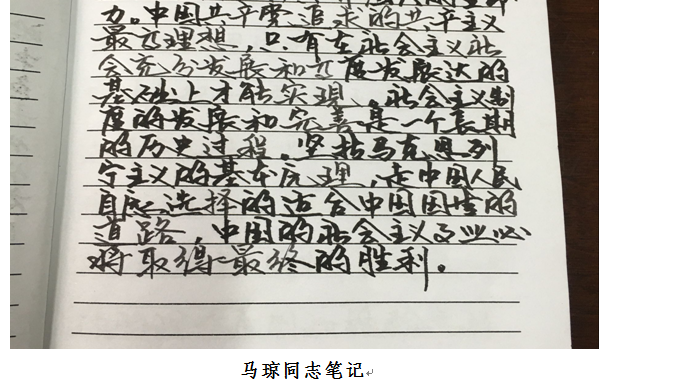 力。中国共产党追求的共产主义
最高理想，只有在社会主义社
会充分发展和高度发展达的
基础上才能实现、社会主义制
度的发展和完善是一个长期
的历史过程，坚持马克思列
宁主义的基本原理，走中国人民
自愿选择的适合中国国情的
道路，中国的社会主义事业必
将取得最终的胜利。
马琼同志笔记